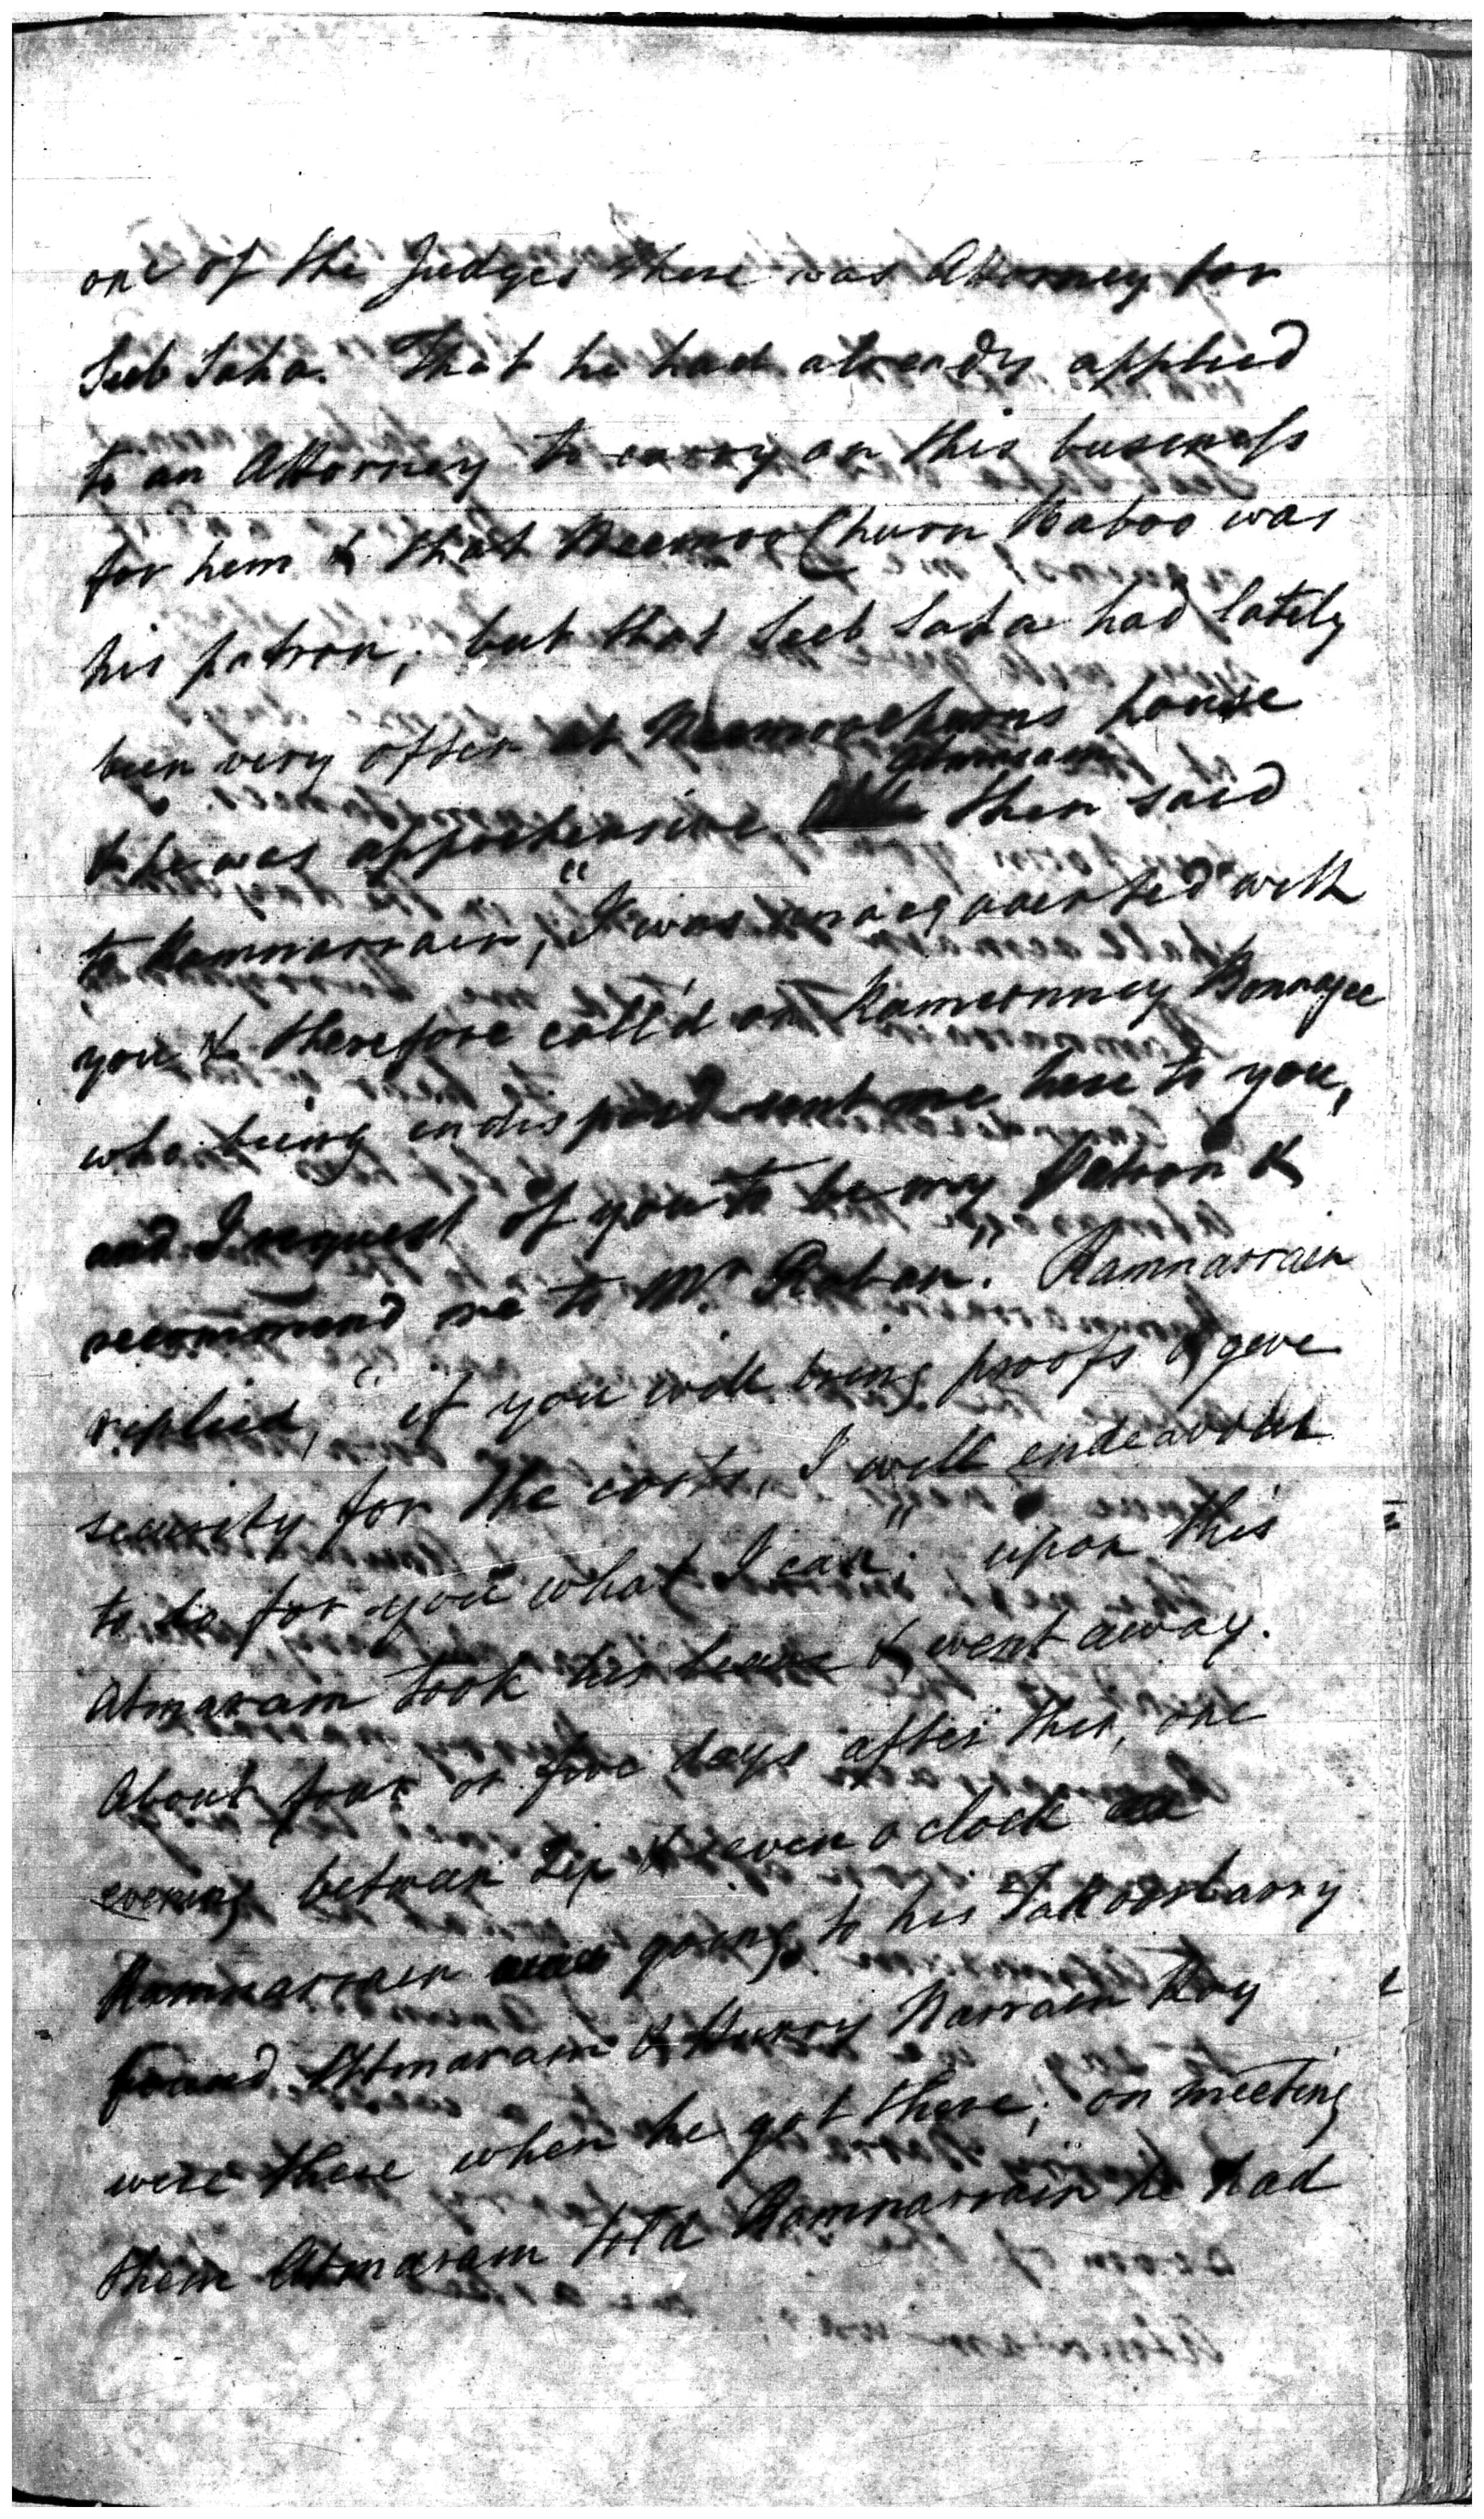 one of the Judges there was Attorney for
Seeb Saha. That he had already applied
to an Attorney to carry on this business
for him & that Neemoo Churn Baboo was
his patron; but that Seeb Saha had lately
been very often at Neemoochurns house
Atmaram
& he was apprehensive, then said
to Ramnarrain, "I was unacquainted with
you & therefore call'd on Rameonney Bonnagee
who being indisposed sent me here to you,
and I request of you to be my Patron &
recommend me to Mr. Roban." Ramnarrain
replied, "if you will bring proofs & give
security for the costs, I will endeavour
to do for you what I can;" upon this
Atmaram took his leave & went away.
About four or five days after this, one
evening between six & seven o clock
Ramnarrain going to his Takoorbarry
found Atmaram & Hurry Narrain Roy
were there when he got there; on meeting
them Atmaram told Ramnarrain he had